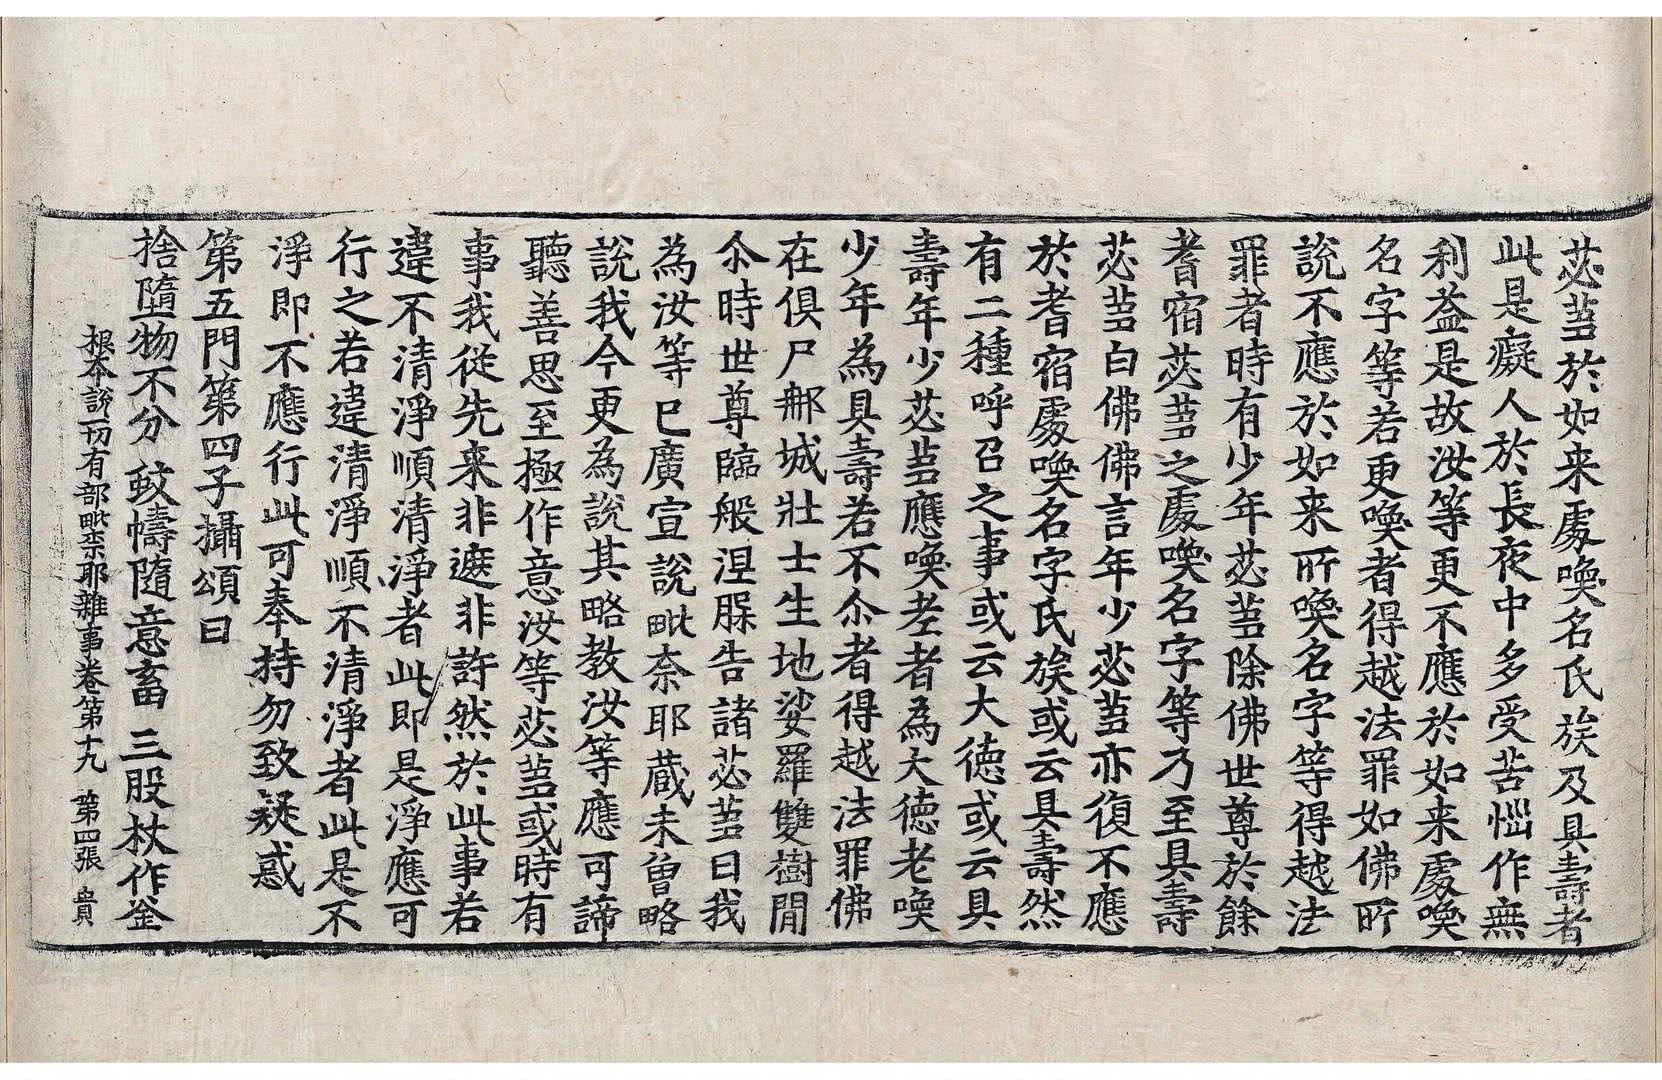 苾蒭於如来處喚名氏族及具壽者
此是癡人於長夜中多受苦惱作無
利益是故汝等更不應於如来處喚
名字等若更喚者得越法罪如佛所
說不應於如来所喚名字等得越法
罪者時有少年苾蒭除佛世尊於餘
耆宿苾蒭之處喚名字等乃至具壽
苾蒭白佛佛言年少苾蒭亦復不應
於耆宿處喚名字氏族或云具壽然
有二種呼召之事或云大德或云具
壽年少苾蒭應喚老者為大德老喚
少年為具壽若不尒者得越法罪佛
在俱尸那城壯士生地娑羅雙樹間
尒時世尊臨般涅槃告諸苾蒭曰我
為汝等已廣宣說毗奈耶蔵未曾略
說我今更為說其略教汝等應可諦
聽善思至極作意汝等苾蒭或時有
事我從先来非遮非許然於此事若
違不清淨順清淨者此即是淨應可
行之若違清淨順不清淨者此是不
淨即不應行此可奉持勿致疑惑
第五門第四子攝頌曰
捨墮物不分　蚊幬隨意畜　三股杖作釜
根本說一切有部毗柰耶雜事卷第十九　第四張　貴